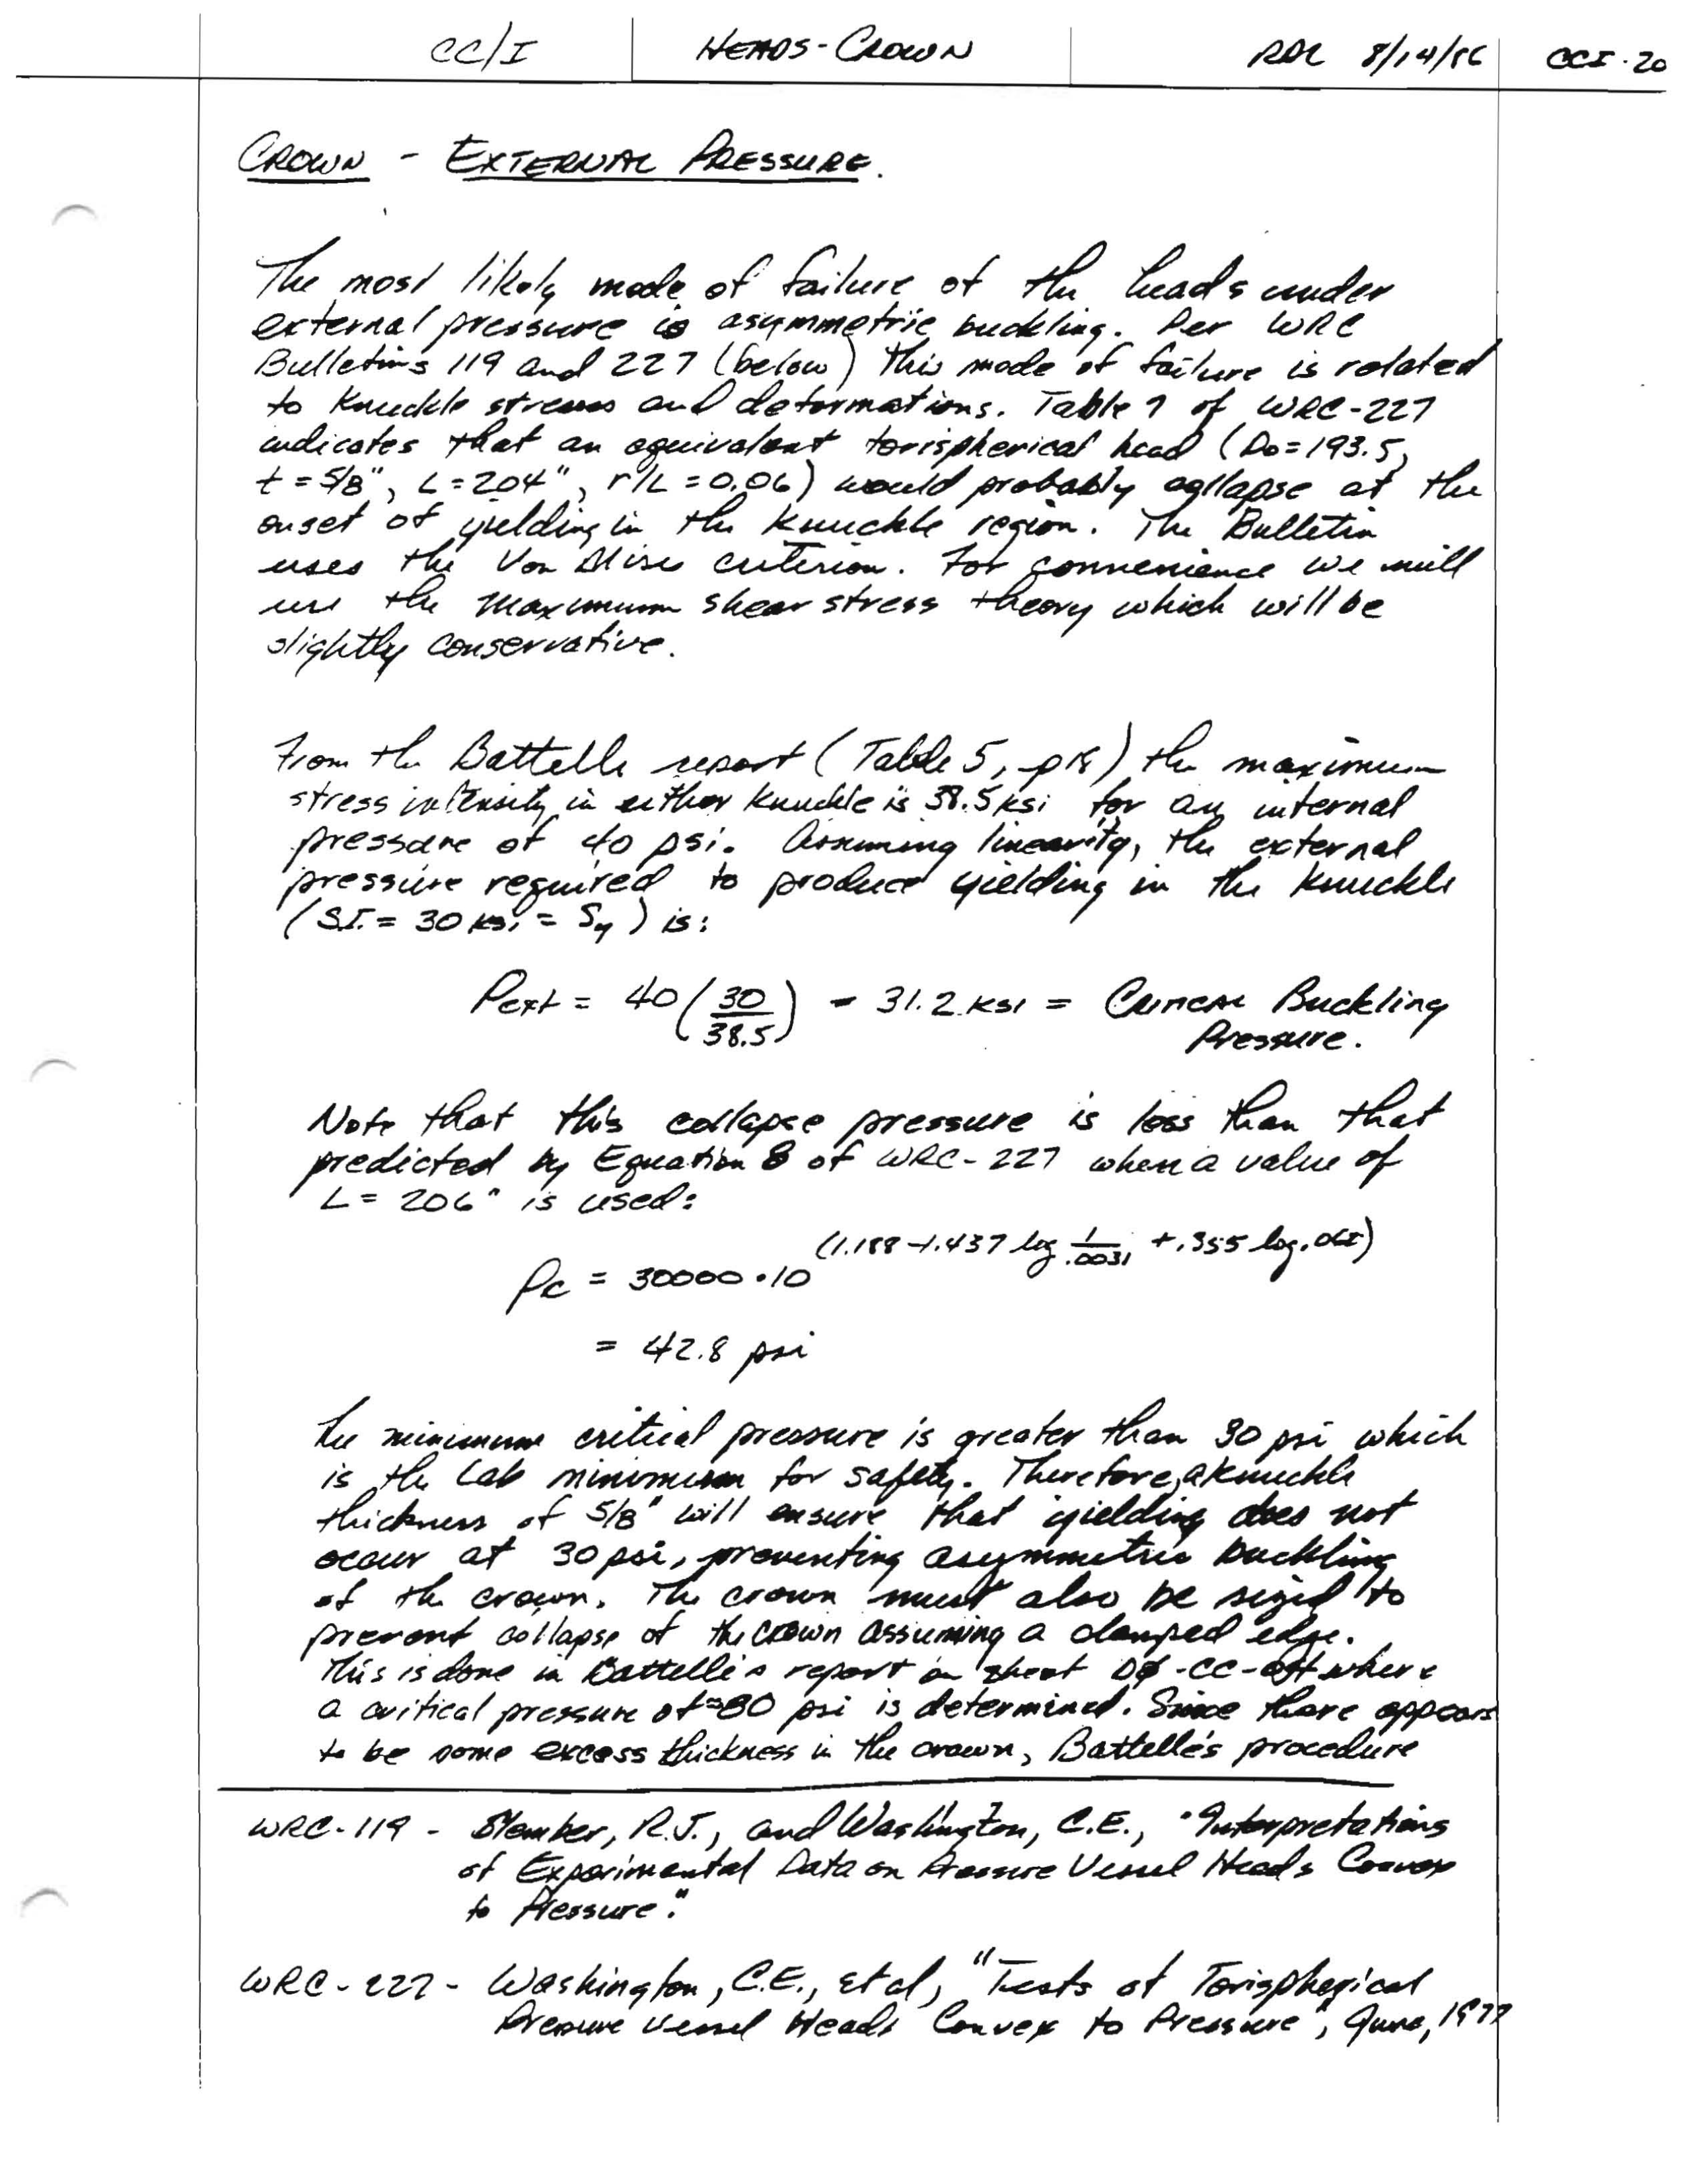 CC/I HEADS-CROWN 8/14/86 CCI-20
CROWN - EXTERNAL PRESSURE.
The most likely mode of failure of the heads under
external pressure is asymmetric buckling. Per WRC
Bulletins 119 and 227 (below) this mode of failure is related
to knuckle stresses and deformations. Table 7 of WRC-227
indicates that an equivalent torispherical head (Do=193.5,
t=5/8", L=204", r/L=0.06) would probably collapse at the
onset of yielding in the knuckle region. The Bulletin
uses the Von Mises criterion. For convenience we will
use the maximum shear stress theory which will be
slightly conservative.
From the Battelle report (Table 5, p18) the maximum
stress intensity in either knuckle is 38.5 ksi for an internal
pressure of 40 psi. Assuming linearity, the external
pressure required to produce yielding in the knuckle
(S.I. = 30 ksi = Sy) is:
Pext = 40 (30/38.5) = 31.2 ksi = Critical Buckling
Pressure.
Note that this collapse pressure is less than that
predicted by Equation 8 of WRC-227 when a value of
L = 206" is used:
(1.188 -1.437 log 1/.0031 + .355 log .06)
Pc = 30000 • 10
= 42.8 psi
The minimum critical pressure is greater than 30 psi which
is the Lab minimum for safety. Therefore, a knuckle
thickness of 5/8" will ensure that yielding does not
occur at 30 psi, preventing asymmetric buckling
of the crown. The crown must also be sized to
prevent collapse of the crown assuming a clamped edge.
This is done in Battelle's report on sheet where
a critical pressure of ≈80 psi is determined. Since there appears
to be some excess thickness in the crown, Battelle's procedure
WRC-119 - R.J., and Washington, C.E., "Interpretations
of Experimental Data on Pressure Vessel Heads Convex
to Pressure".
WRC-227 - Washington, C.E., Et al, "Tests of Torispherical
Pressure Vessel Heads Convex to Pressure", June, 1977